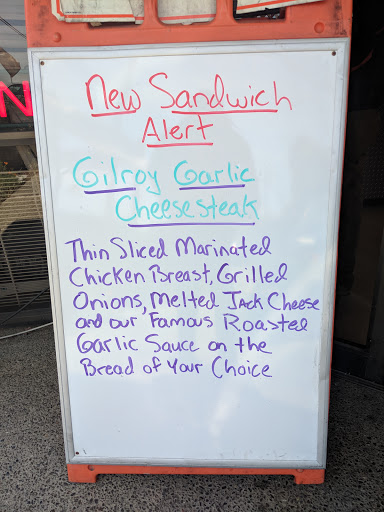 New Sandwich
Alert
Gilroy Garlic
Cheesesteak
Thin Sliced Marinated
Chicken Breast, Grilled
Onions, Melted Jack Cheese
and our Famous Roasted
Garlic Sauce on the
Bread of Your Choice